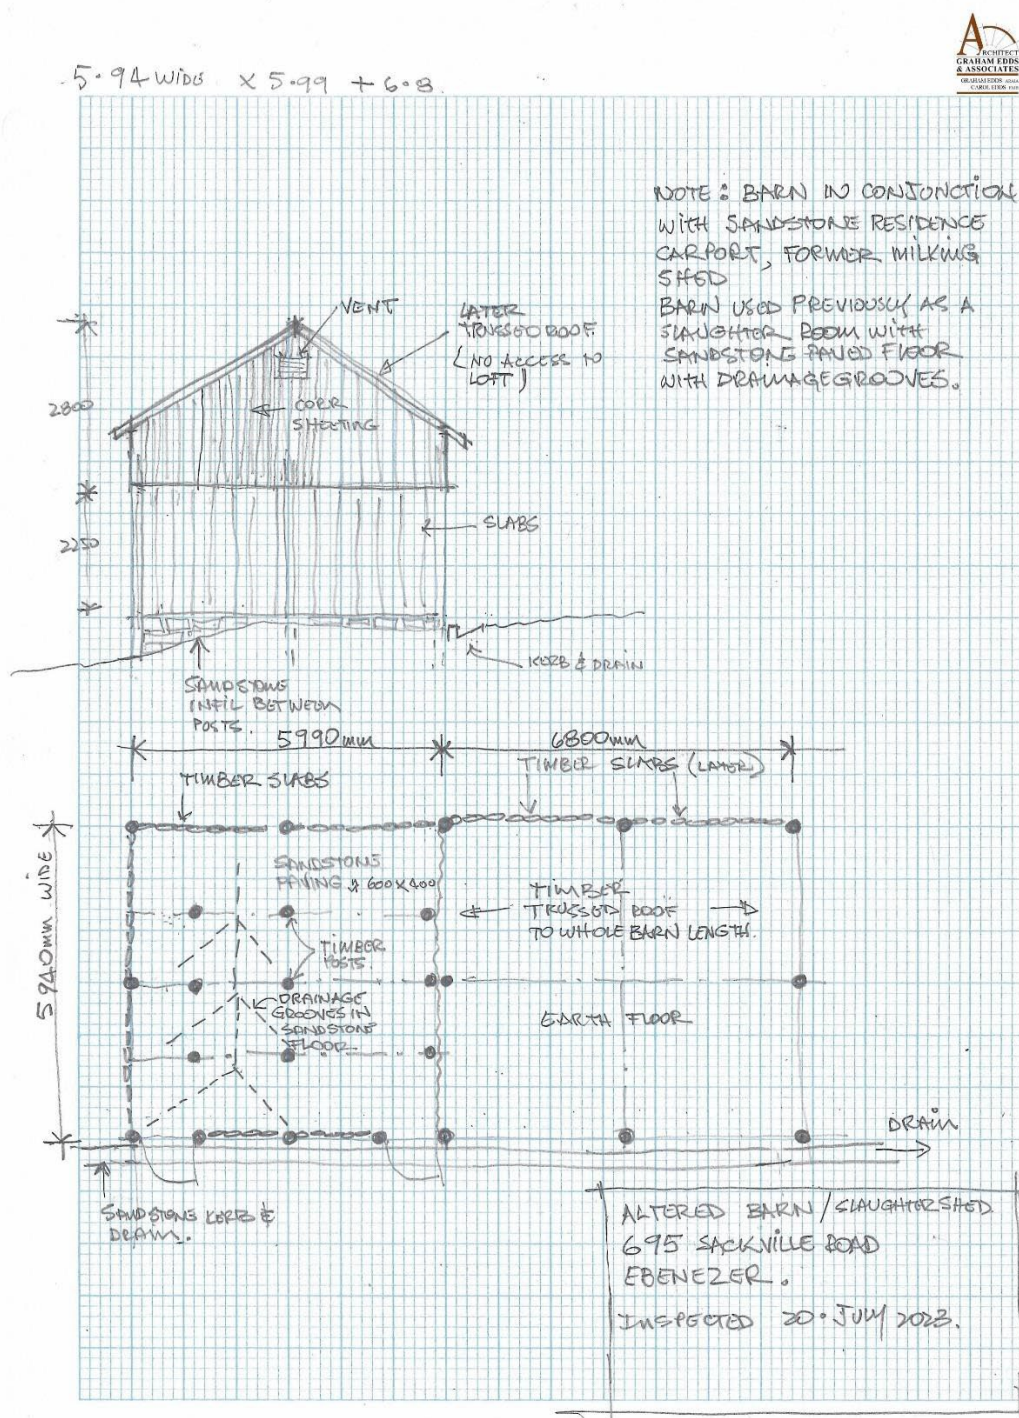 ARCHITECT
GRAHAM EDDS
& ASSOCIATES
GRAHAM EDDS
CAROL EDDS
5.94 WIDE x 5.99 + 6.8
NOTE: BARN IN CONJUNCTION
WITH SANDSTONE RESIDENCE
CARPORT, FORMER MILKING
SHED
BARN USED PREVIOUSLY AS A
SLAUGHTER ROOM WITH
SANDSTONE PAVED FLOOR
WITH DRAINAGE GROOVES.
VENT
LATER
TRUSSED ROOF.
(NO ACCESS TO
LOFT)
2800
CORR
SHEETING
SLABS
2250
KERB & DRAIN
SANDSTONE
INFIL BETWEEN
POSTS.
5990mm
6800mm
TIMBER SLABS
TIMBER SLABS (LATER)
5940mm WIDE
SANDSTONE
PAVING 600x400
TIMBER
TRUSSED ROOF
TO WHOLE BARN LENGTH.
TIMBER
POSTS.
DRAINAGE
GROOVES IN
SANDSTONE
FLOOR
EARTH FLOOR
DRAIN
SANDSTONE KERB &
DRAIN.
ALTERED BARN/SLAUGHTERSHED
695 SACKVILLE ROAD
EBENEZER.
INSPECTED 20.JULY 2023.